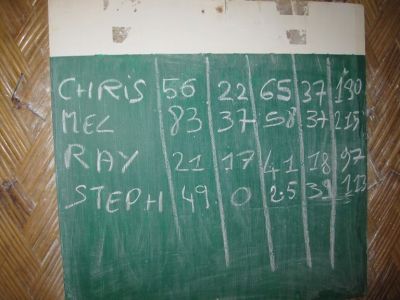 CHRIS 56 22 65 37 180
MEL 83 37 58 37 215
RAY 21 17 41 18 97
STEPH 49 0 25 39 113